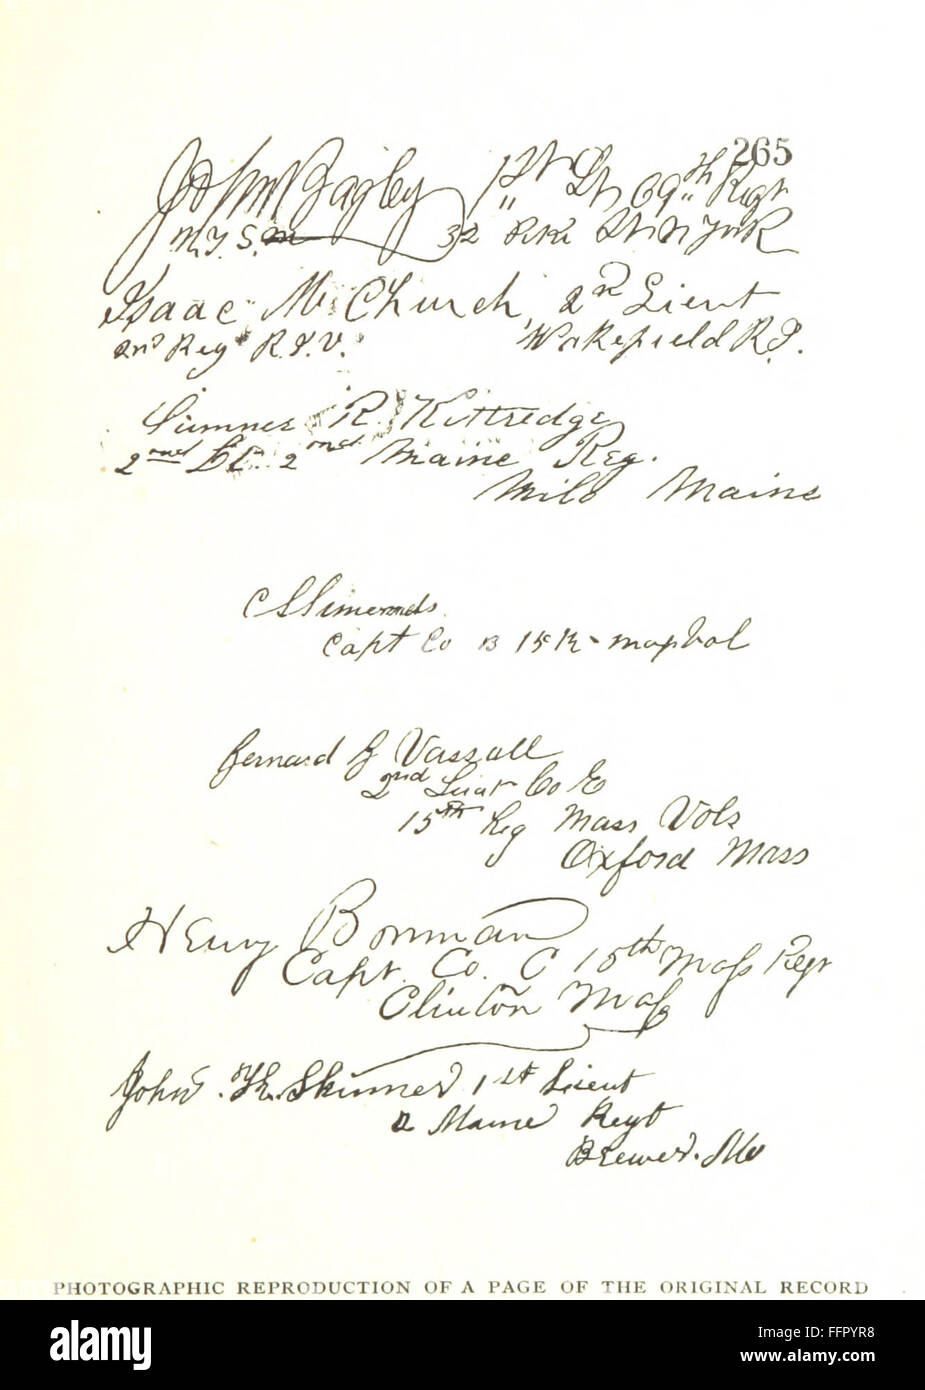 265
John Bagley 1st Lt 69th Regt
N.Y.S.M 32 St N York
Isaac M Church, 2nd Lieut
2nd Reg R.I.V. Wakefield R.I.
Sumner R. Kittredge
2nd Lt. 2nd Maine Reg.
Milo Maine
C S Simonds
Capt Co B 15th Mass Vol
Bernard B Vassall
2nd Lieut Co E
15th Reg Mass Vols
Oxford Mass
Henry Bowman
Capt. Co. C 15th Mass Regt
Clinton Mass
John Skinner 1st Lieut
2 Maine Regt
Brewer. Me
PHOTOGRAPHIC REPRODUCTION OF A PAGE OF THE ORIGINAL RECORD
alamy
Image ID: FFPYR8
www.alamy.com